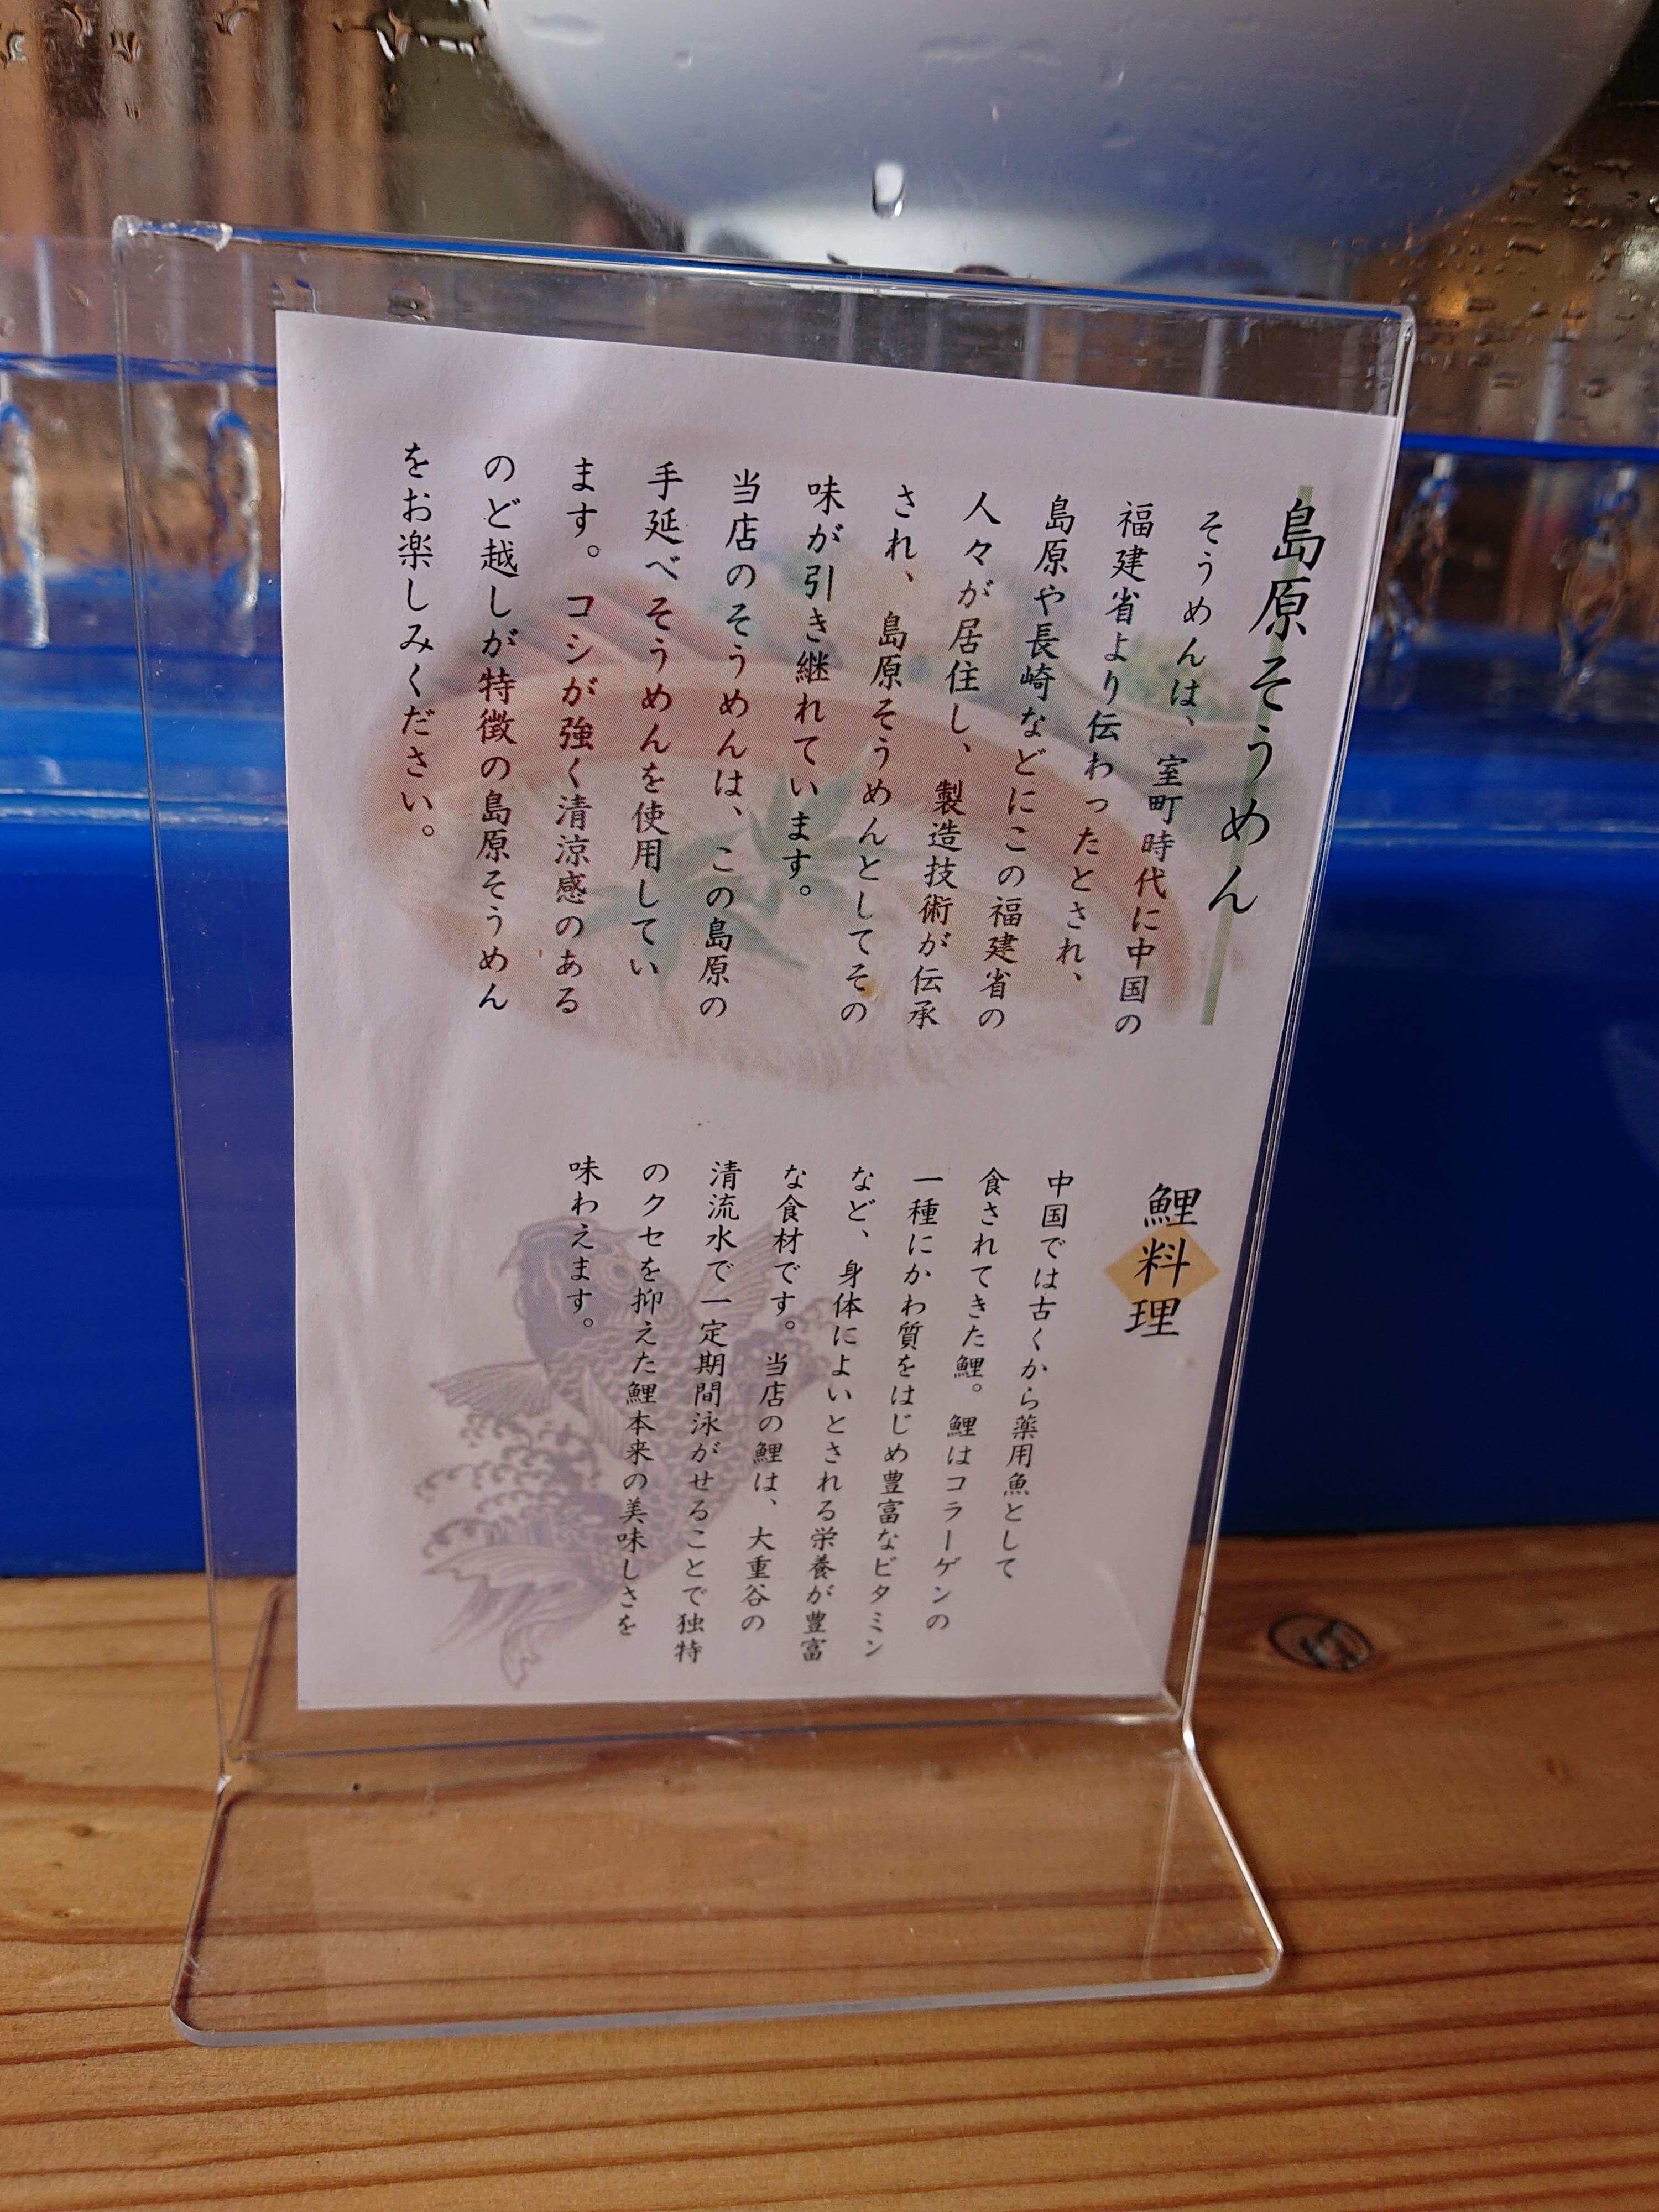 島原そうめん
そうめんは、室町時代に中国の
福建省より伝わったとされ、
島原や長崎などにこの福建省の
人々が居住し、製造技術が伝承
され、島原そうめんとしてその
味が引き継れています。
当店のそうめんは、この島原の
手延べそうめんを使用してい
ます。コシが強く清涼感のある
のど越しが特徴の島原そうめん
をお楽しみください。
鯉料理
中国では古くから薬用魚として
食されてきた鯉。鯉はコラーゲンの
一種にかわ質をはじめ豊富なビタミン
など、身体によいとされる栄養が豊富
な食材です。当店の鯉は、大重谷の
清流水で一定期間泳がせることで独特
のクセを抑えた鯉本来の美味しさを
味わえます。